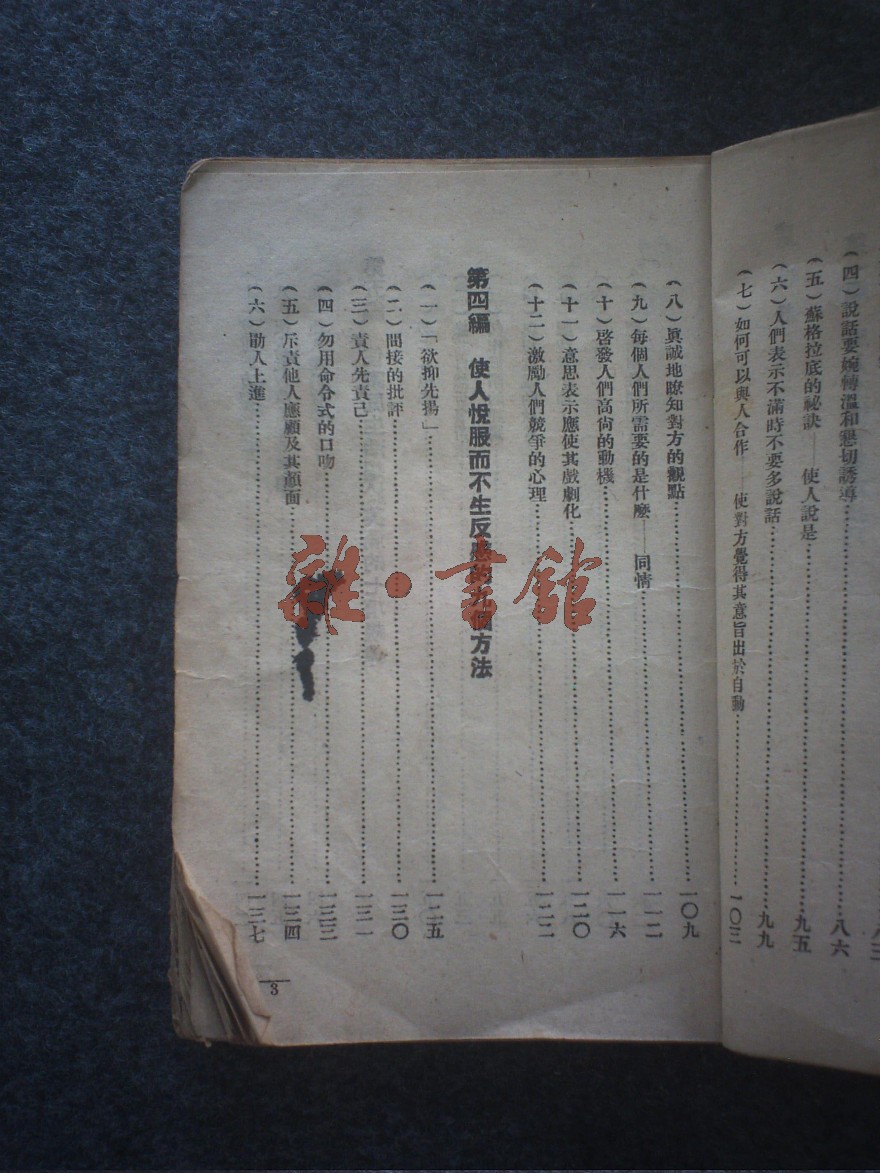 八三
(四)說話要婉轉溫和懇切誘導……八六
(五)蘇格拉底的祕訣——使人說是……九五
(六)人們表示不滿時不要多說話……九九
(七)如何可以與人合作——使對方覺得其意旨出於自動……一〇三
(八)眞誠地瞭知對方的觀點……一〇九
(九)每個人們所需要的是什麽——同情……一一二
(十)啓發人們高尙的動機……一一六
(十一)意思表示應使其戲劇化……一二〇
(十二)激勵人們競爭的心理……一二二
第四編 使人悅服而不生反感的九個方法
(一)「欲抑先揚」……一二五
(二)間接的批評……一三〇
(三)責人先責己……一三一
(四)勿用命令式的口吻……一三三
(五)斥責他人應顧及其顏面……一三四
(六)助人上進……一三七
3
雜·書館